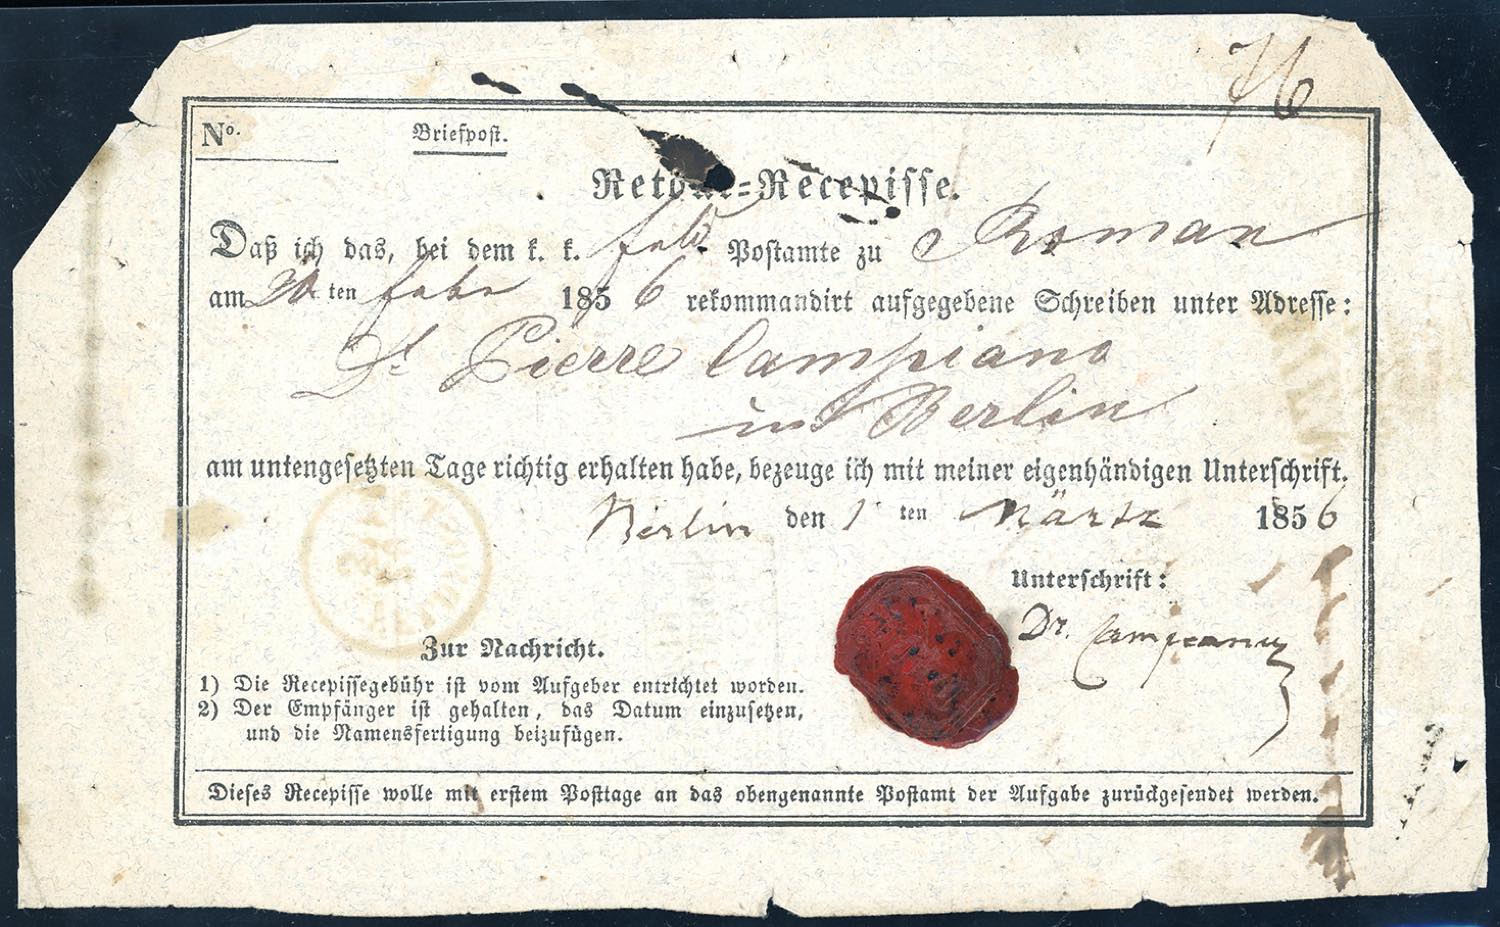 76
No. Briefpost.
Retour-Recepisse.
Daß ich das, bei dem k. k. feld Postamte zu Roman
am ten febr 1856 rekommandirt aufgegebene Schreiben unter Adresse:
Dr Pierre Campiano
in Berlin
am untengesetzten Tage richtig erhalten habe, bezeuge ich mit meiner eigenhändigen Unterschrift.
Berlin den 1 ten März 1856
Unterschrift:
Dr. Campeanu
Zur Nachricht.
1) Die Recepissegebühr ist vom Aufgeber entrichtet worden.
2) Der Empfänger ist gehalten, das Datum einzusetzen,
und die Namensfertigung beizufügen.
Dieses Recepisse wolle mit erstem Posttage an das obengenannte Postamt der Aufgabe zurückgesendet werden.